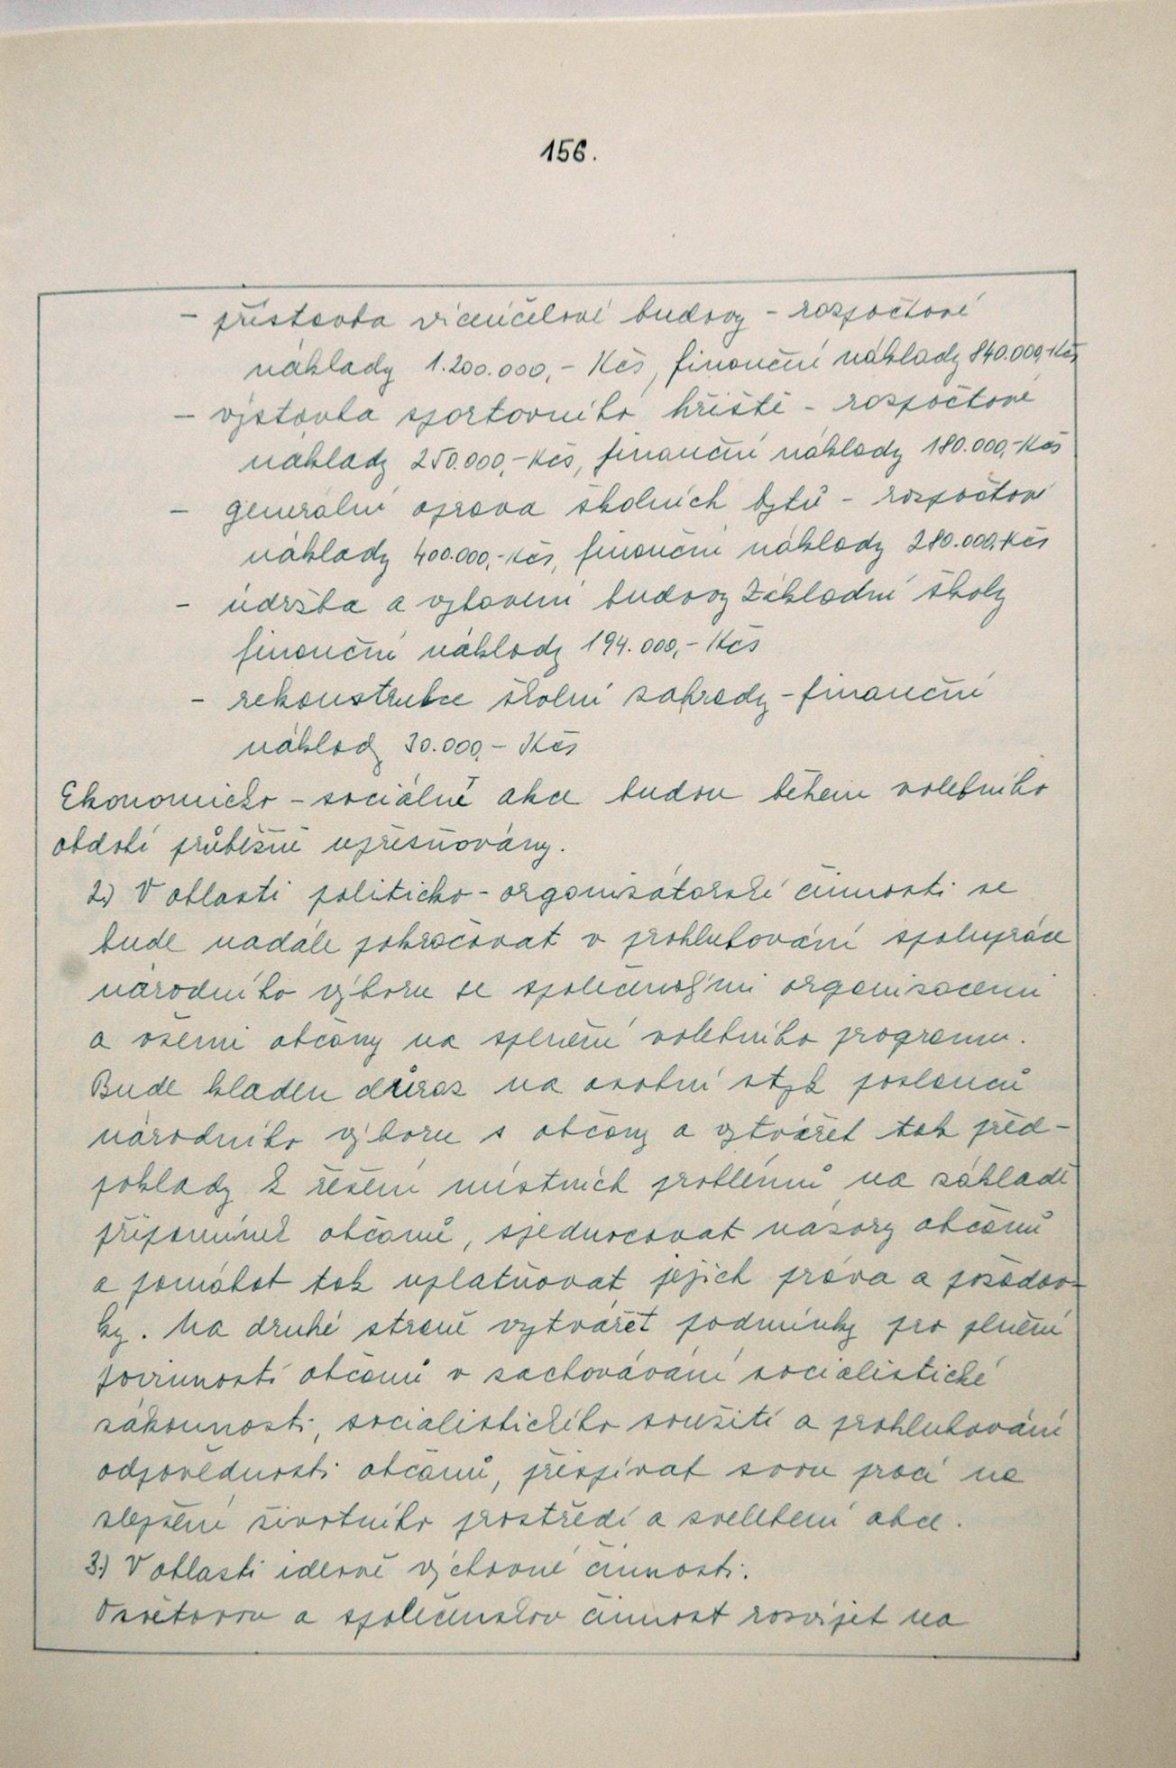 156.
- přístavba víceúčelové budovy - rozpočtové
náklady 1.200.000,- Kčs, finanční náklady 840.000,-Kčs
- výstavba sportovního hřiště - rozpočtové
náklady 250.000,-Kčs, finanční náklady 180.000,-Kčs
- generální oprava školních bytů - rozpočtové
náklady 400.000,-Kčs, finanční náklady 280.000,-Kčs
- údržba a vybavení budovy Základní školy
finanční náklady 194.000,- Kčs
- rekonstrukce školní zahrady - finanční
náklady 30.000,- Kčs
Ekonomicko - sociálně akce budou během volebního
období průběžně upřesňovány.
2.) V oblasti politicko - organizátorské činnosti se
bude nadále pokračovat v prohlubování spolupráce
národního výboru se společenskými organizacemi
a všemi občany na splnění volebního programu.
Bude kladen důraz na osobní styk poslanců
národního výboru s občany a vytvářet tak před-
poklady k řešení místních problémů na základě
připomínek občanů, sjednocovat názory občanů
a pomáhat tak uplatňovat jejich práva a požadav-
ky. Na druhé straně vytvářet podmínky pro plnění
povinností občanů v zachovávání socialistické
zákonnosti, socialistického soužití a prohlubování
odpovědnosti občanů, přispívat svou prací na
zlepšení životního prostředí a zvelebení obce.
3.) V oblasti ideově výchovné činnosti.
Osvětovou a společenskou činnost rozvíjet na